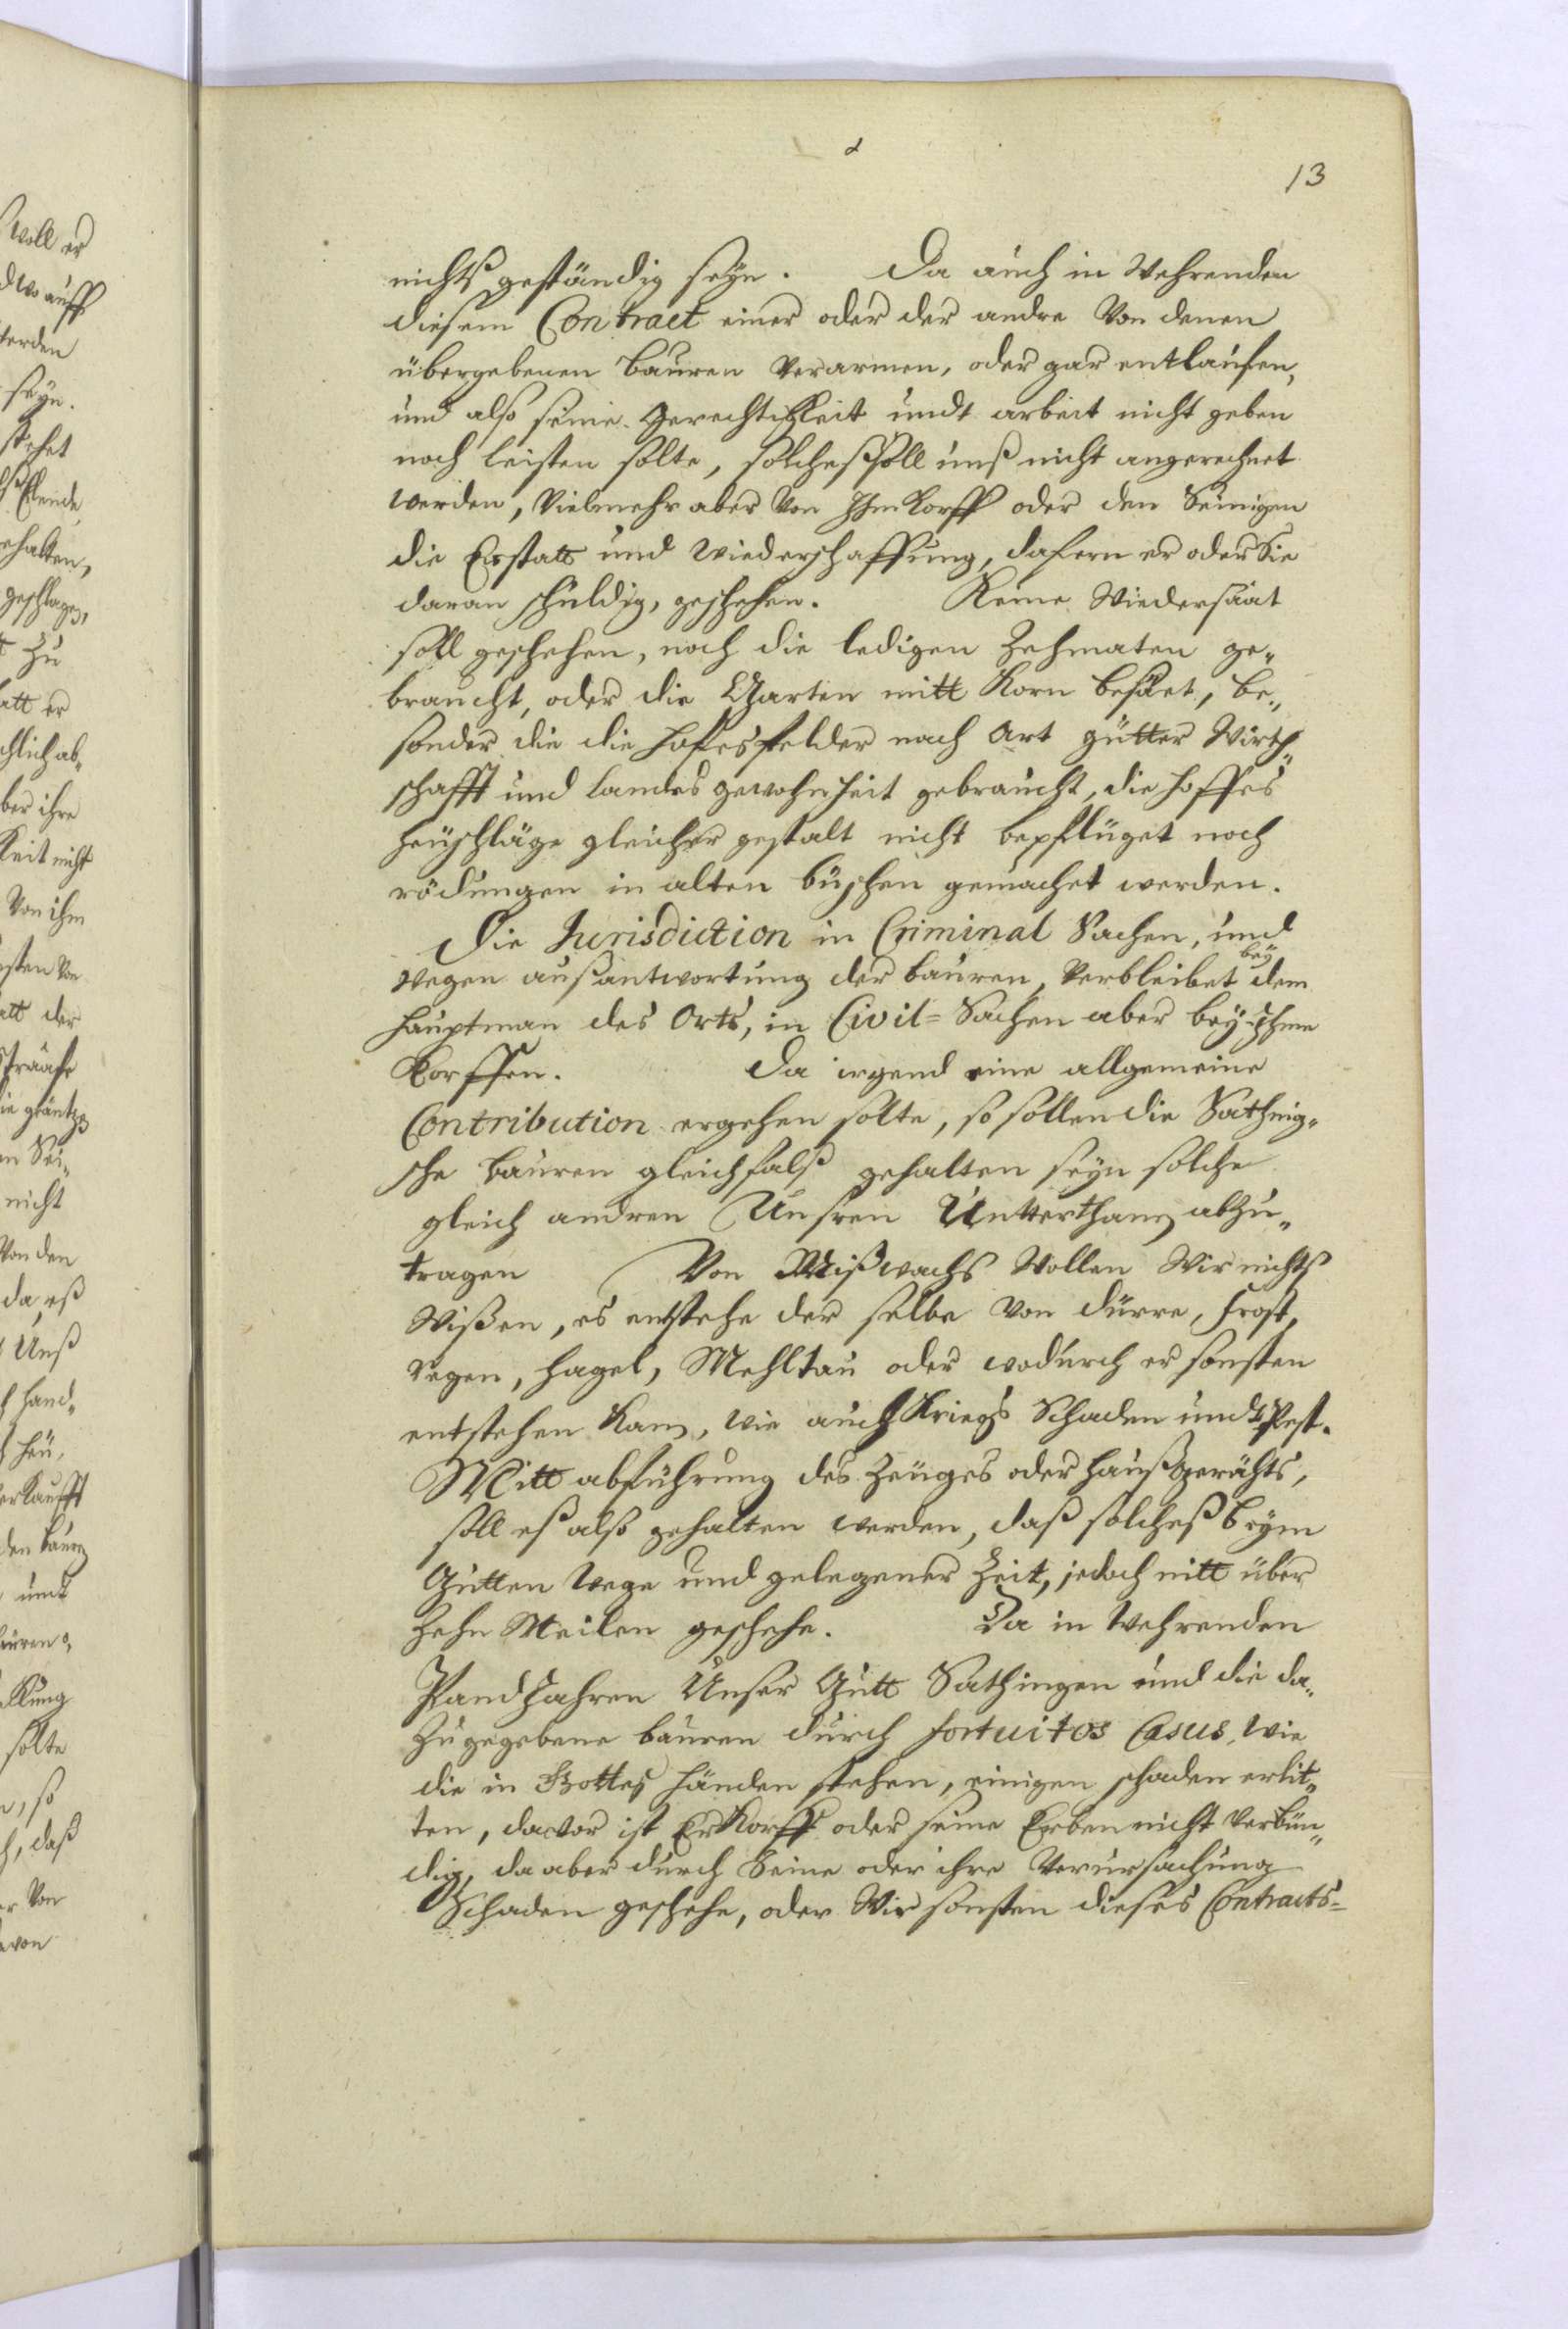 13
nichtß geständig seyn. Da auch in Wehrenden
diesem Contract einer oder der andre Von denen
übergebenen Bauren Verarmen, oder gar entlaufen,
und also seine Gerechtigkeit undt arbeit nicht geben
noch leisten solte, solcheß soll unß nicht angerechnet
werden, Vielmehr aber Von Ihm Korff oder den Seinigen
die Erstatt und Wiederschaffung, dafern er oder Sie
daran schuldig, geschehen. Keine Wiedersaat
soll geschehen, noch die ledigen Zehmaten ge„
braucht, oder die Gärten mitt Korn besäet, be„
sonder die die Hofesfelder nach Art gutter Wirth„
schafft und landes gewohnheit gebraucht, die Hoffes
Heuschläge gleicher gestalt nicht bepflüget noch
rödungen in alten büschen gemachet werden.
Die Jurisdiction in Criminal Sachen, und
wegen außantwortung der bauren, Verbleibet bey dem
Hauptman des Orts, in Civil= Sachen aber bey Ihme
Korffen. Da irgend eine allgemeine
Contribution ergehen solte, so sollen die Sathing„
sche Bauren gleichfalß gehalten seyn solche
gleich andren Unsren Untterthanen abzu„
tragen Von Mißwachs Wollen Wir nichts
Wißen, es entstehe der selbe Von dürre, Frost,
regen, Hagel, Mehltau oder wodurch er sonsten
entstehen Kann, wie auch Kriegs Schaden undt Pest.
Mitt abführung des Zeuges oder Haußgerähts,
soll eß alß gehalten werden, daß solcheß beym
Gutten Wege und gelegener Zeit, jedoch nitt über
Zehn Meilen geschehe. Da in Wehrenden
PfandJahren Unser Gutt Sathingen und die da„
zu gegebene bauren durch fortuitos Casus, wie
die in Gottes Händen stehen, einigen schaden erlit„
ten, davor ist Er Korff oder seine Erben nicht Verbün„
dig, da aber durch Seine oder ihre Verursachung
Schaden geschehe, oder Wir sonsten dieses Contracts=